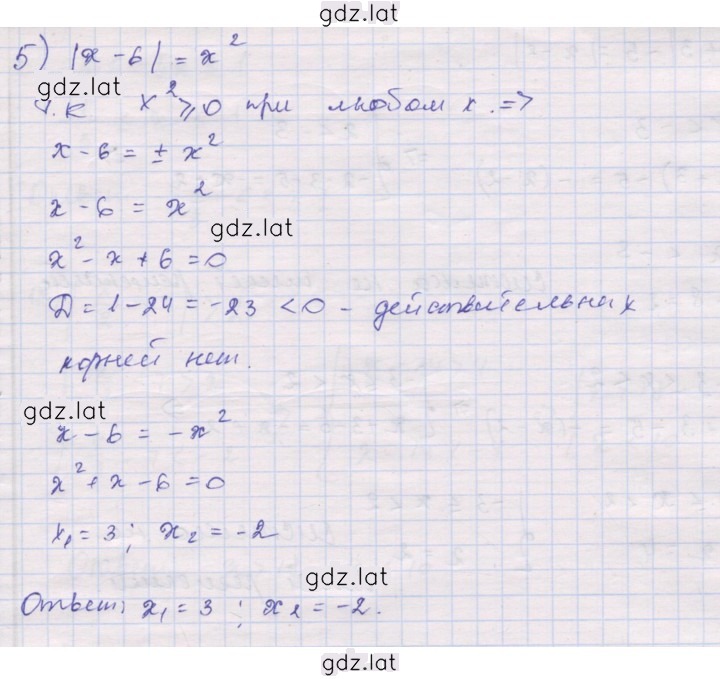 gdz.lat
5) |x - 6| = x²
gdz.lat
т.к x² ⩾ 0 при любом x. =>
x - 6 = ± x²
x - 6 = x²
gdz.lat
x² - x + 6 = 0
D = 1 - 24 = -23 < 0 - действительных
корней нет.
gdz.lat
x - 6 = -x²
x² + x - 6 = 0
x₁ = 3 ; x₂ = -2
gdz.lat
Ответ: x₁ = 3 ; x₂ = -2.
gdz.lat